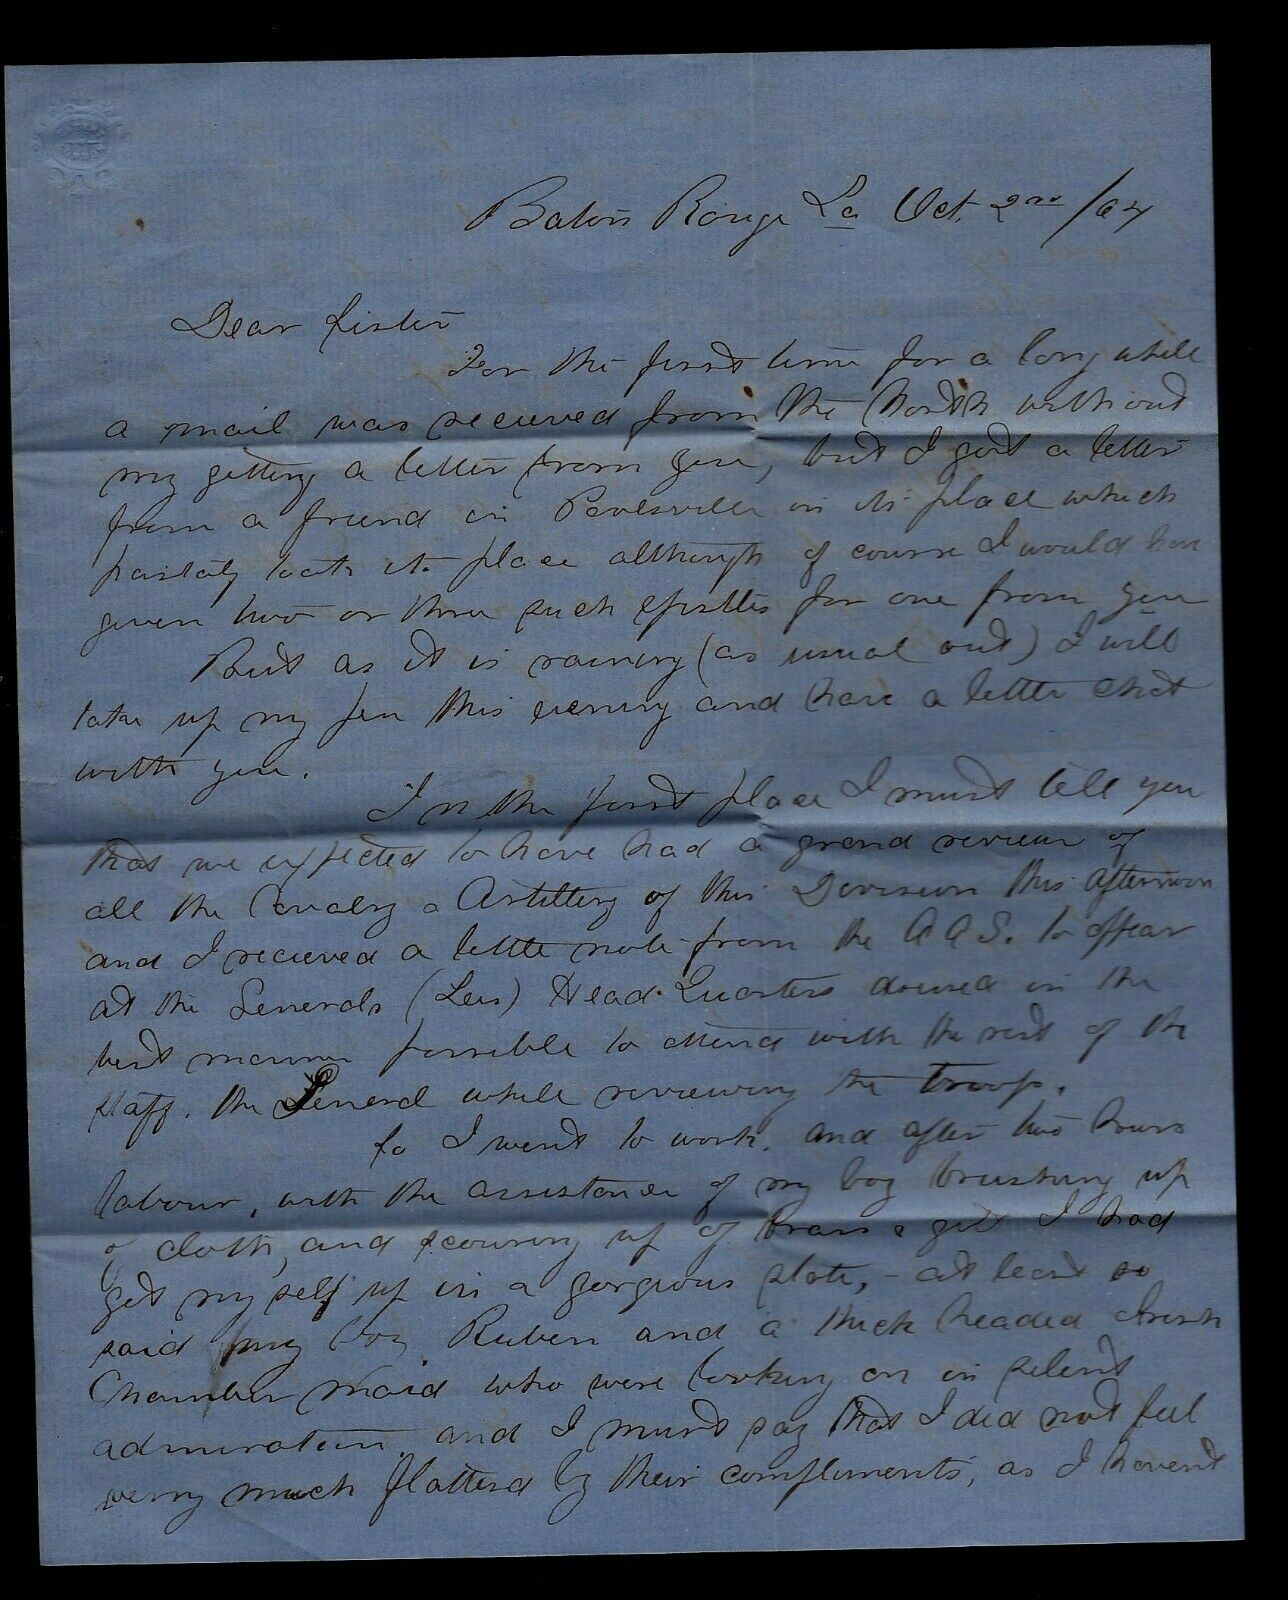 Baton Rouge La Oct. 2nd /64
Dear Sister
For the first time for a long while
a mail was recieved from the North without
my getting a letter from you, but I got a letter
from a friend in in its place which
partialy took its place although of course I would have
given two or three such epistles for one from you
But as it is raining (as usual out) I will
take up my pen this evening and have a little chat
with you.
In the first place I must tell you
that we expected to have had a grand review of
all the Cavalry & Artillery of this Division this afternoon
and I recieved a little note from the A A G. to appear
at the Generals (Lees) Head Quarters dressed in the
best manner possible to attend with the rest of the
staff. the General while reviewing the troops.
So I went to work, and after two hours
labour, with the assistance of my boy brushing up
of cloth, and scouring up of brass & gilt I had
got myself up in a gorgious state, - at least so
said my boy Ruben and a thick headed Irish
Chamber maid who were looking on in silent
admiration, and I must say that I did not feel
verry much flatterd by their compliments, as I havent